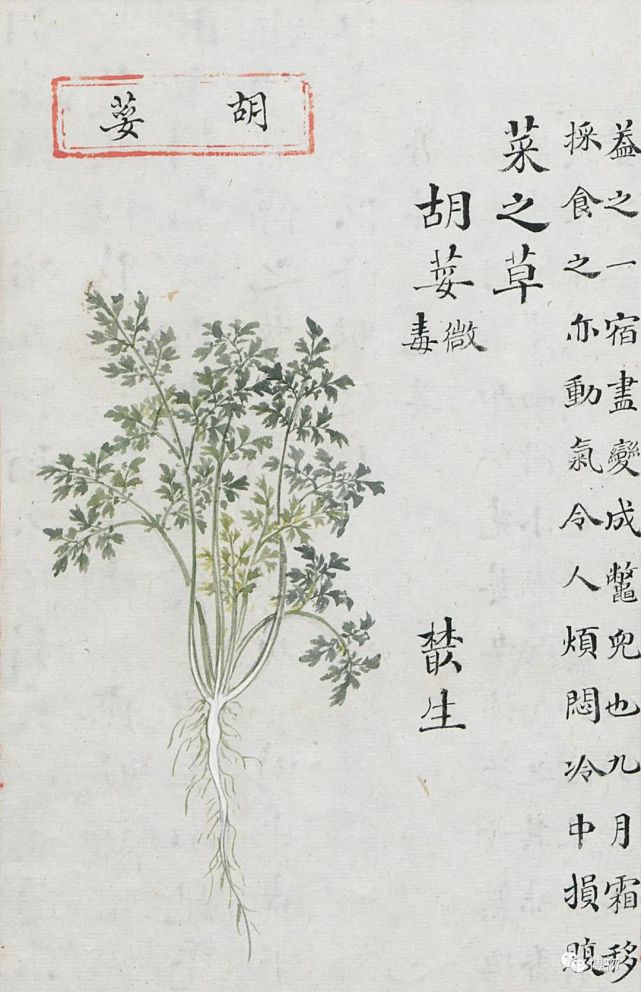 葢之一宿盡變成鼈兒也九月霜移
採食之亦動氣令人煩悶冷中損腹
菜之草
胡荽
微毒
生
胡荽
博物